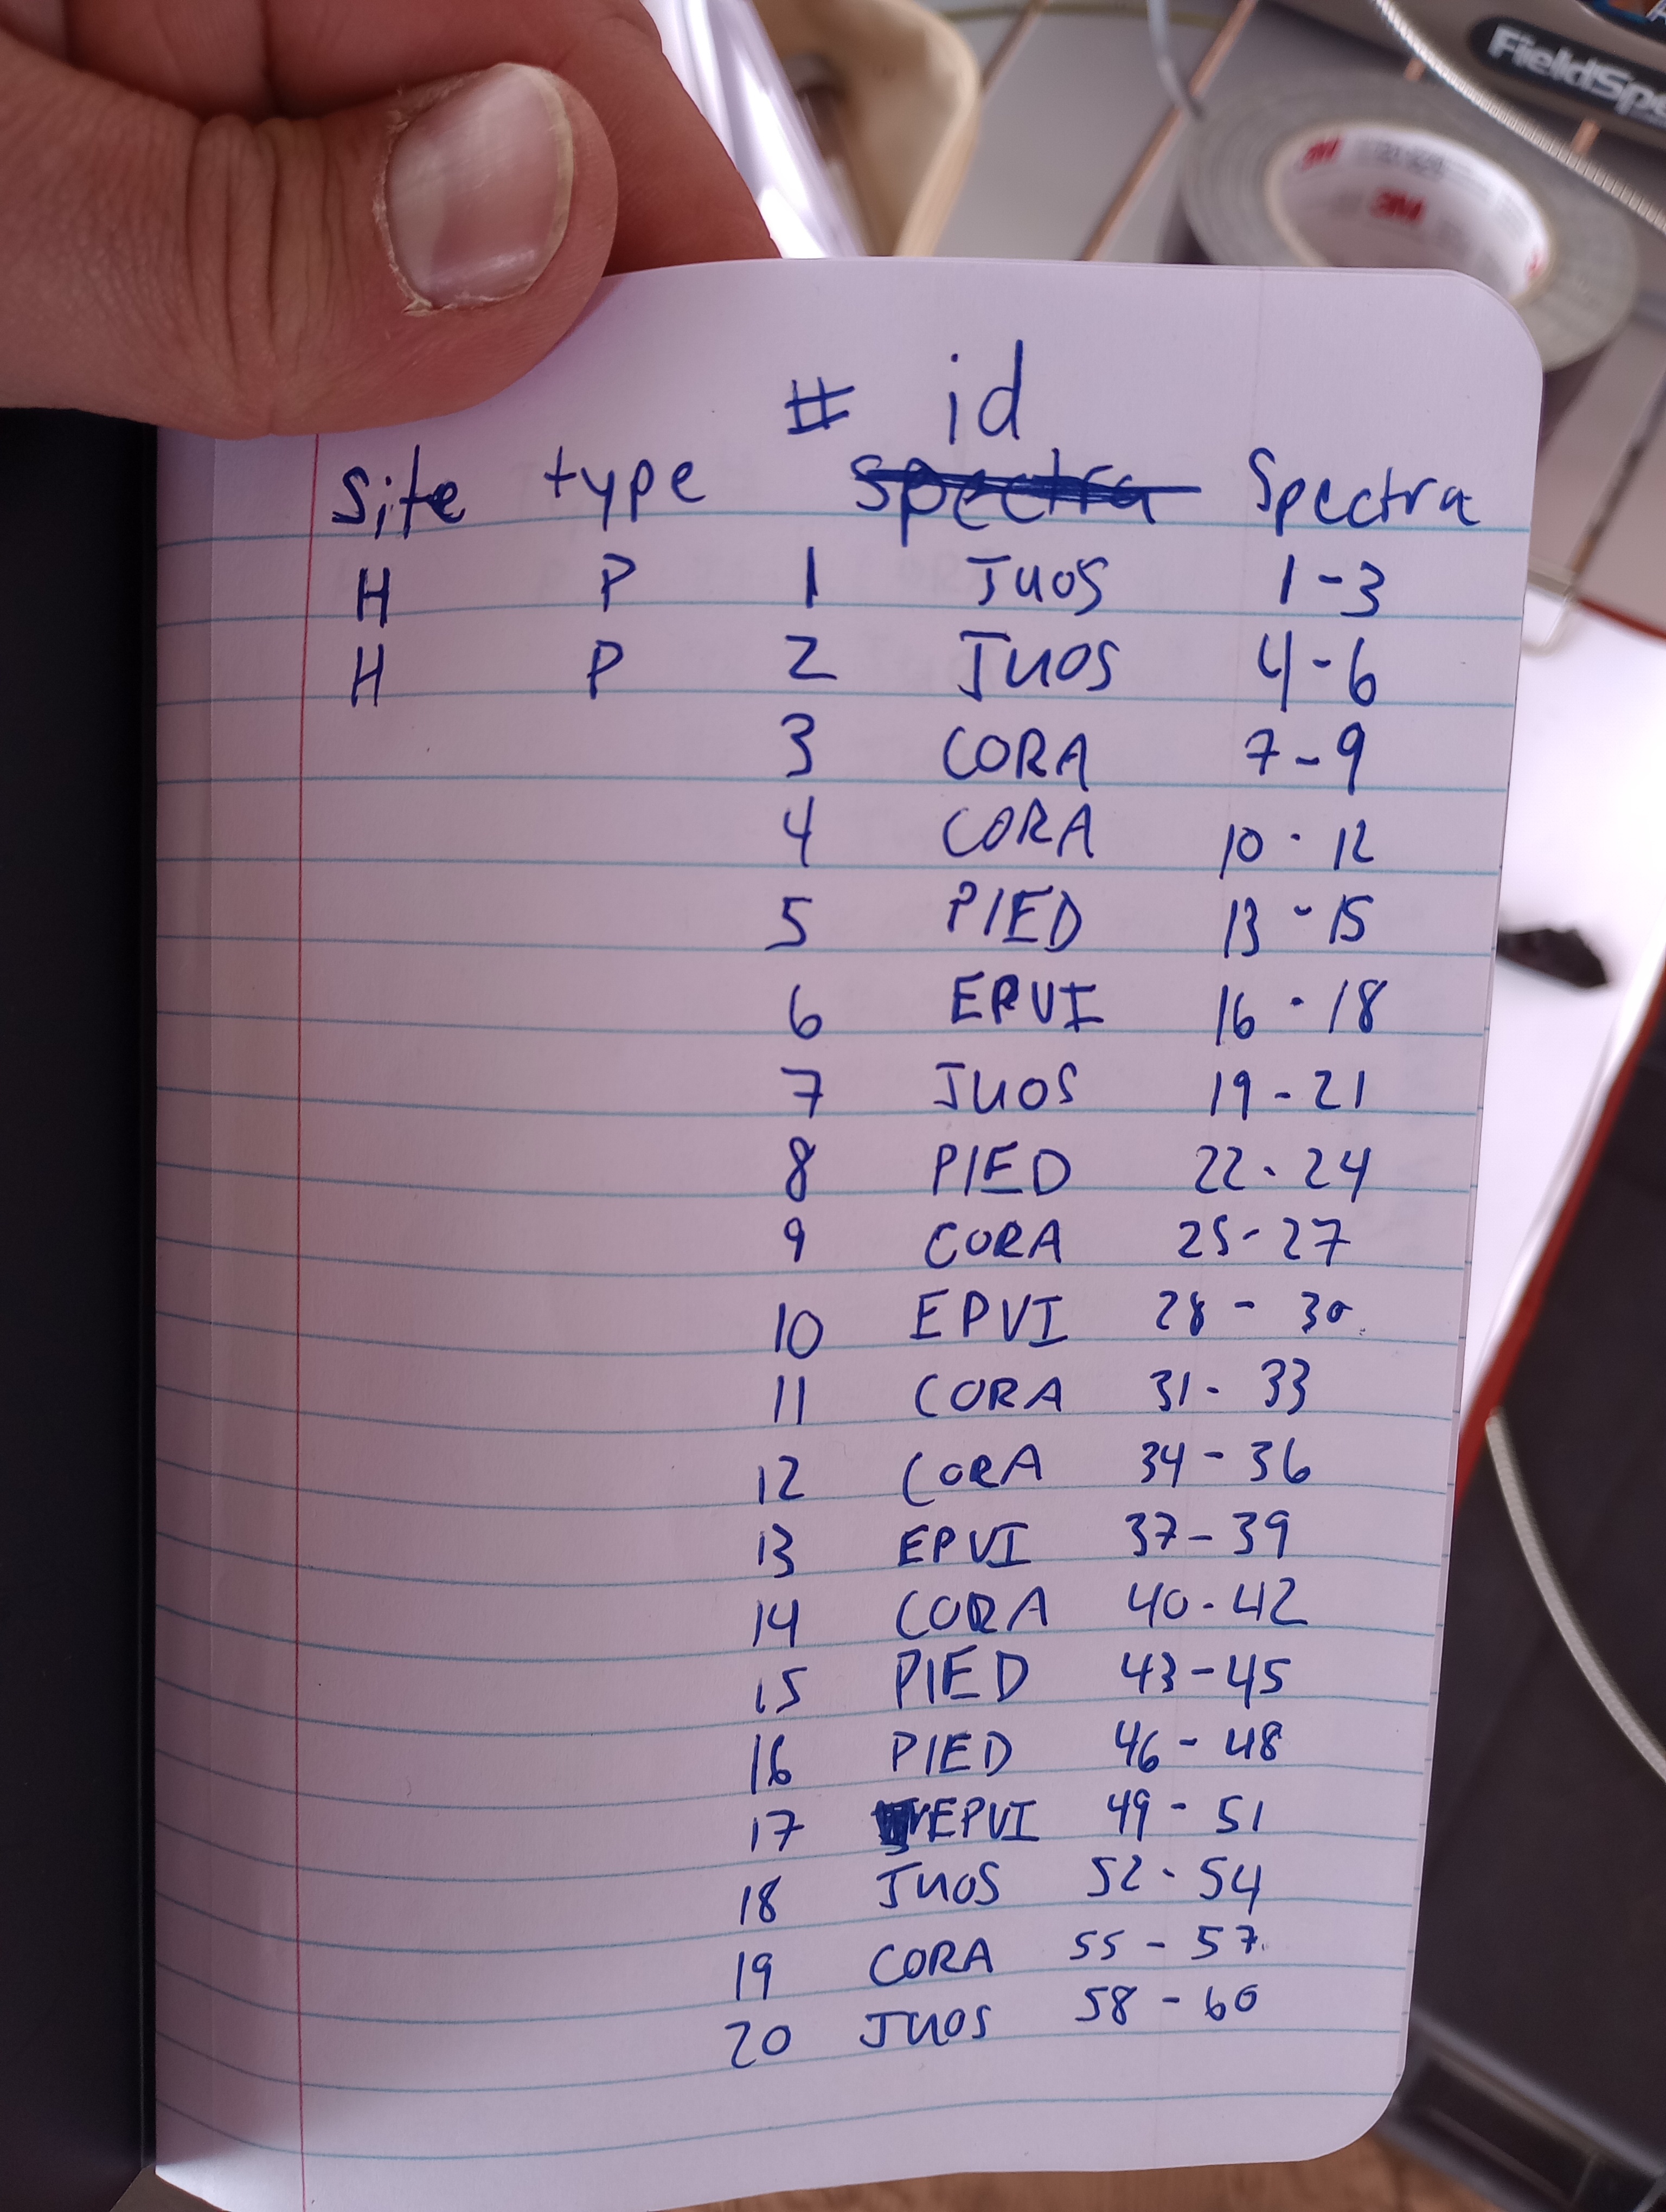 FieldSp
3M
3M
# id
Site type spectra Spectra
H P 1 JUOS 1-3
H P 2 JUOS 4-6
3 CORA 7-9
4 CORA 10-12
5 PIED 13-15
6 EPVI 16-18
7 JUOS 19-21
8 PIED 22-24
9 CORA 25-27
10 EPVI 28-30
11 CORA 31-33
12 CORA 34-36
13 EPVI 37-39
14 CORA 40-42
15 PIED 43-45
16 PIED 46-48
17 EPVI 49-51
18 JUOS 52-54
19 CORA 55-57
20 JUOS 58-60